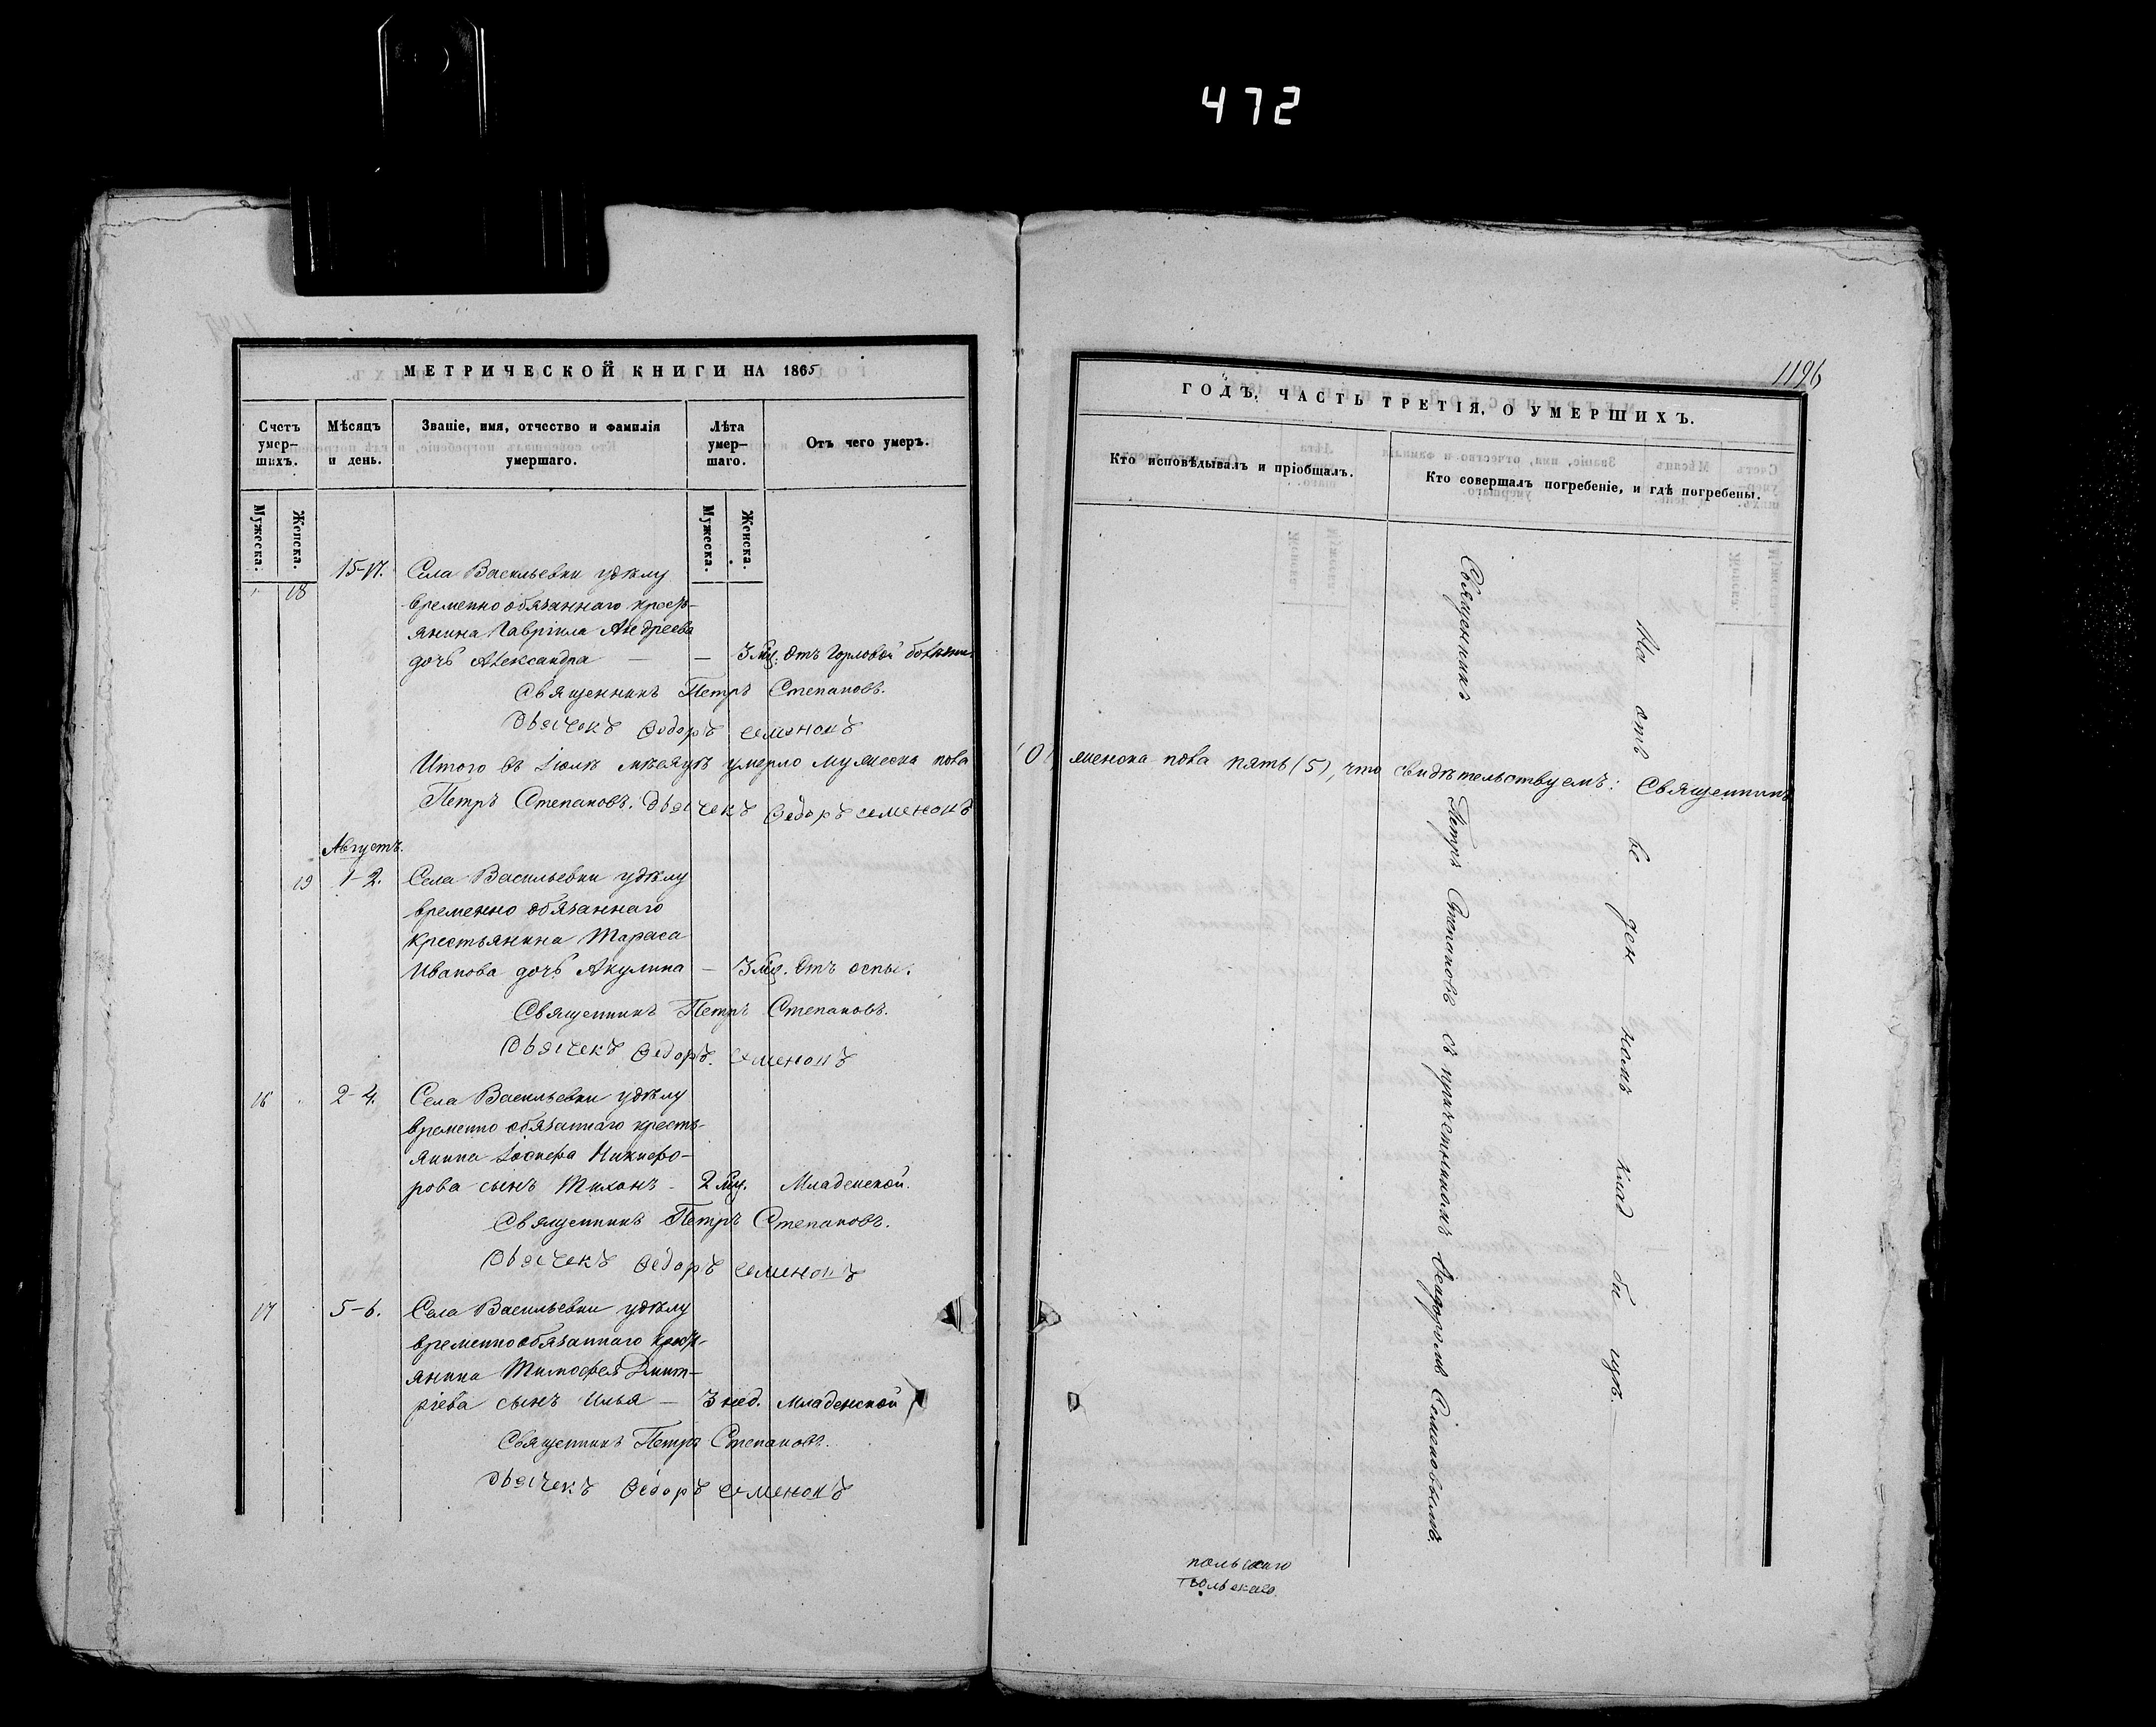 472
МЕТРИЧЕСКОЙ КНИГИ НА 1865
Счетъ умер-шихъ.
Мѣсяцъ и день.
Званіе, имя, отчество и фамилія умершаго.
Лѣта умер-шаго.
Отъ чего умеръ.
Мужеска.
Женска.
Мужеска.
Женска.
18
15-17.
Села Васильевки удѣлу
временно обязаннаго кресть-
янина Гавріила Андреева
дочь Александра — — 3 мц. Отъ горловой болѣзни.
Священникъ Петръ Степановъ.
Дьячекъ Федоръ Семеновъ
Итого въ Іюлѣ мѣсяцѣ умерло мужеска пола
Петръ Степановъ. Дьячекъ Федоръ Семеновъ
Августъ.
19 1-2. Села Васильевки удѣлу
временно обязаннаго
крестьянина Тараса
Иванова дочь Акулина — 3 мц. Отъ оспы.
Священникъ Петръ Степановъ.
Дьячекъ Федоръ Семеновъ
16 2-4. Села Васильевки удѣлу
временно обязаннаго кресть-
янина Никифо-
рова сынъ Тихонъ - 2 мц. Младенской.
Священникъ Петръ Степановъ.
Дьячекъ Федоръ Семеновъ
17 5-6. Села Васильевки удѣлу
временнообязаннаго кресть-
янина Тимофея Дмит-
ріева сынъ Илья — 3 нед. Младенской
Священникъ Петръ Степановъ.
Дьячекъ Федоръ Семеновъ
1196
ГОДЪ, ЧАСТЬ ТРЕТІЯ, О УМЕРШИХЪ.
Кто исповѣдывалъ и пріобщалъ.
Кто совершалъ погребеніе, и гдѣ погребены.
(0) женска пола пять (5), что свидѣтельствуемъ: Священникъ
Священникъ Петръ Степановъ съ причетникомъ Ѳеодоромъ Семеновымъ.
На отведенномъ кладбищѣ.
польскаго
польскаго